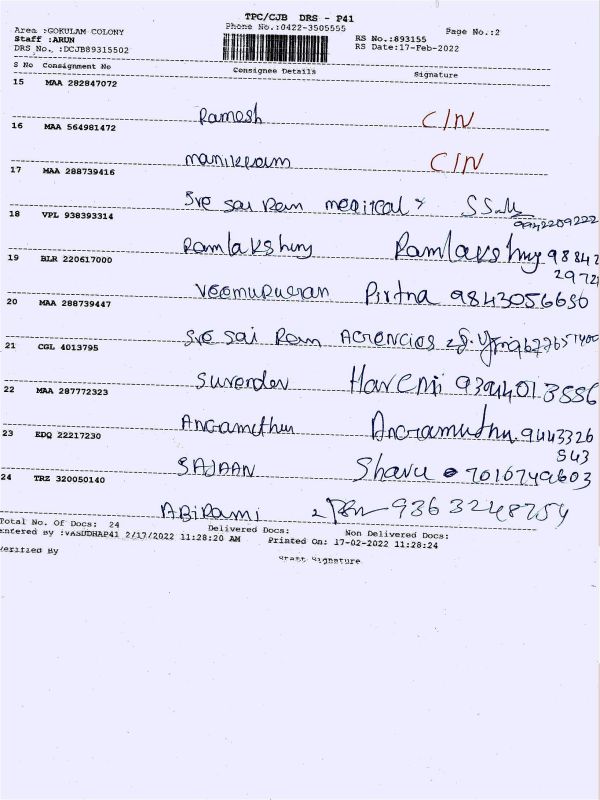 TPC/CJB DRS - P41
Area :GOKULAM COLONY Phone No.:0422-3505555 Page No.:2
Staff :ARUN RS No.:893155
DRS No. :DCJB89315502 RS Date:17-Feb-2022
S No Consignment No Consignee Details Signature
15 MAA 282847072
Ramesh C/N
16 MAA 564981472
manikkam C/N
17 MAA 288739416
Sre Sai Ram medical S
9942209222
18 VPL 938393314
Ramlakshmy Ramlakshmy 98842
2972
19 BLR 220617000
Pirtna 9843056636
20 MAA 288739447
Sre Sai Ram Agencies
21 CGL 4013795
Surender 9394013556
22 MAA 287772323
Angamuthu Angamuthu 9443326
543
23 EDQ 22217230
SAJAAN 7016749603
24 TRZ 320050140
ABiRami 9363248754
Total No. Of Docs: 24 Delivered Docs: Non Delivered Docs:
Entered By :VASUDHAP41 2/17/2022 11:28:20 AM Printed On: 17-02-2022 11:28:24
Verified By Staff Signature